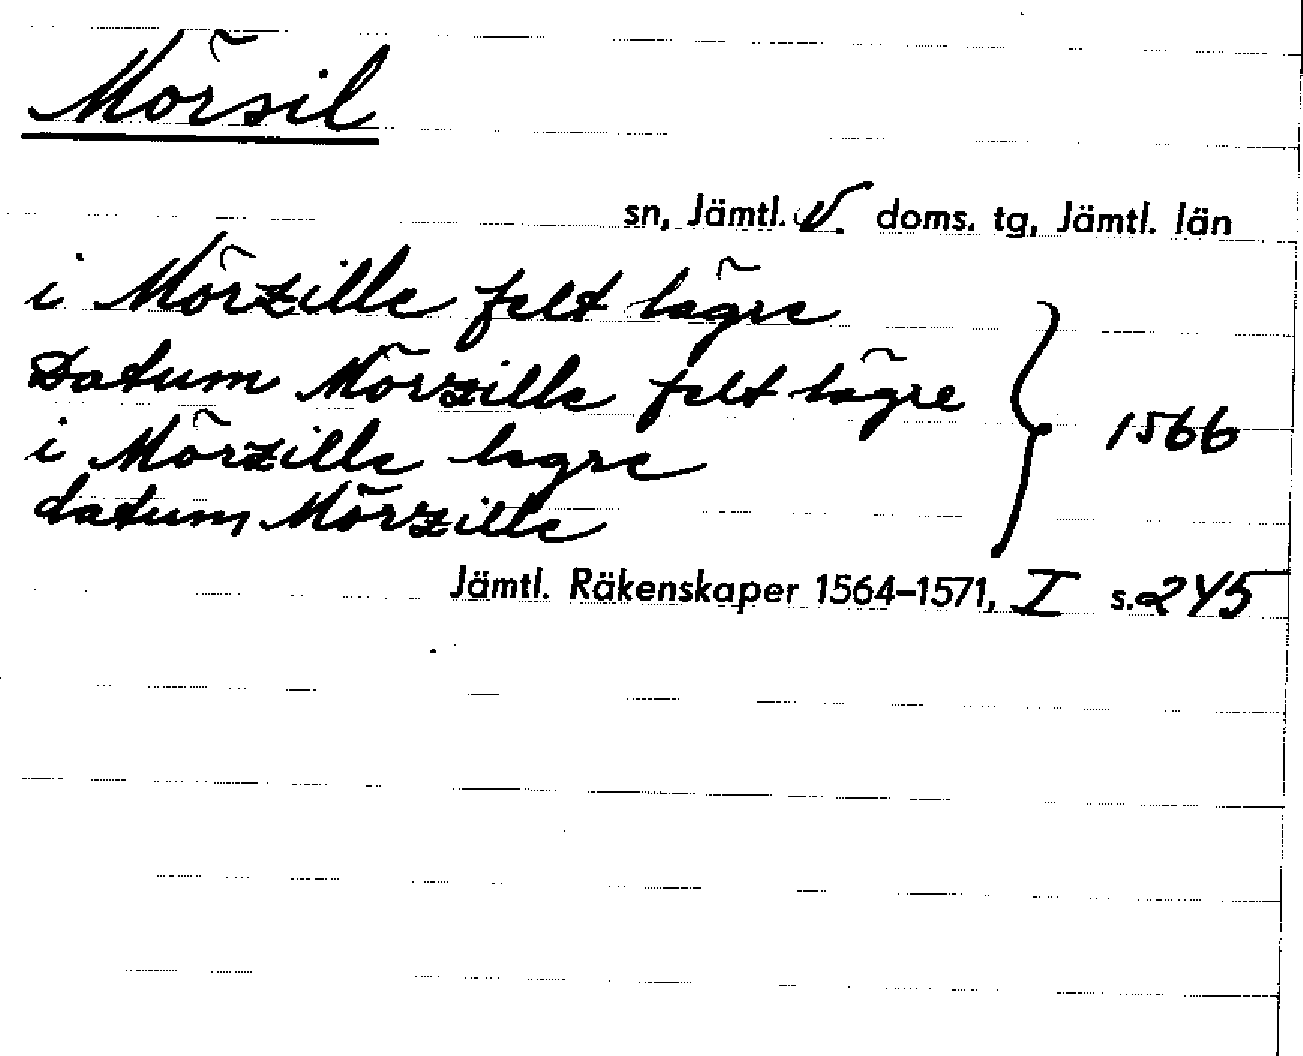 Mörsil
sn, Jämtl. V. doms. tg, Jämtl. län
i Mörzille felt lägre
Datum Mörzille felt lägre
i Mörzille legre
datum Mörzille
1566
Jämtl. Räkenskaper 1564–1571, I s. 245